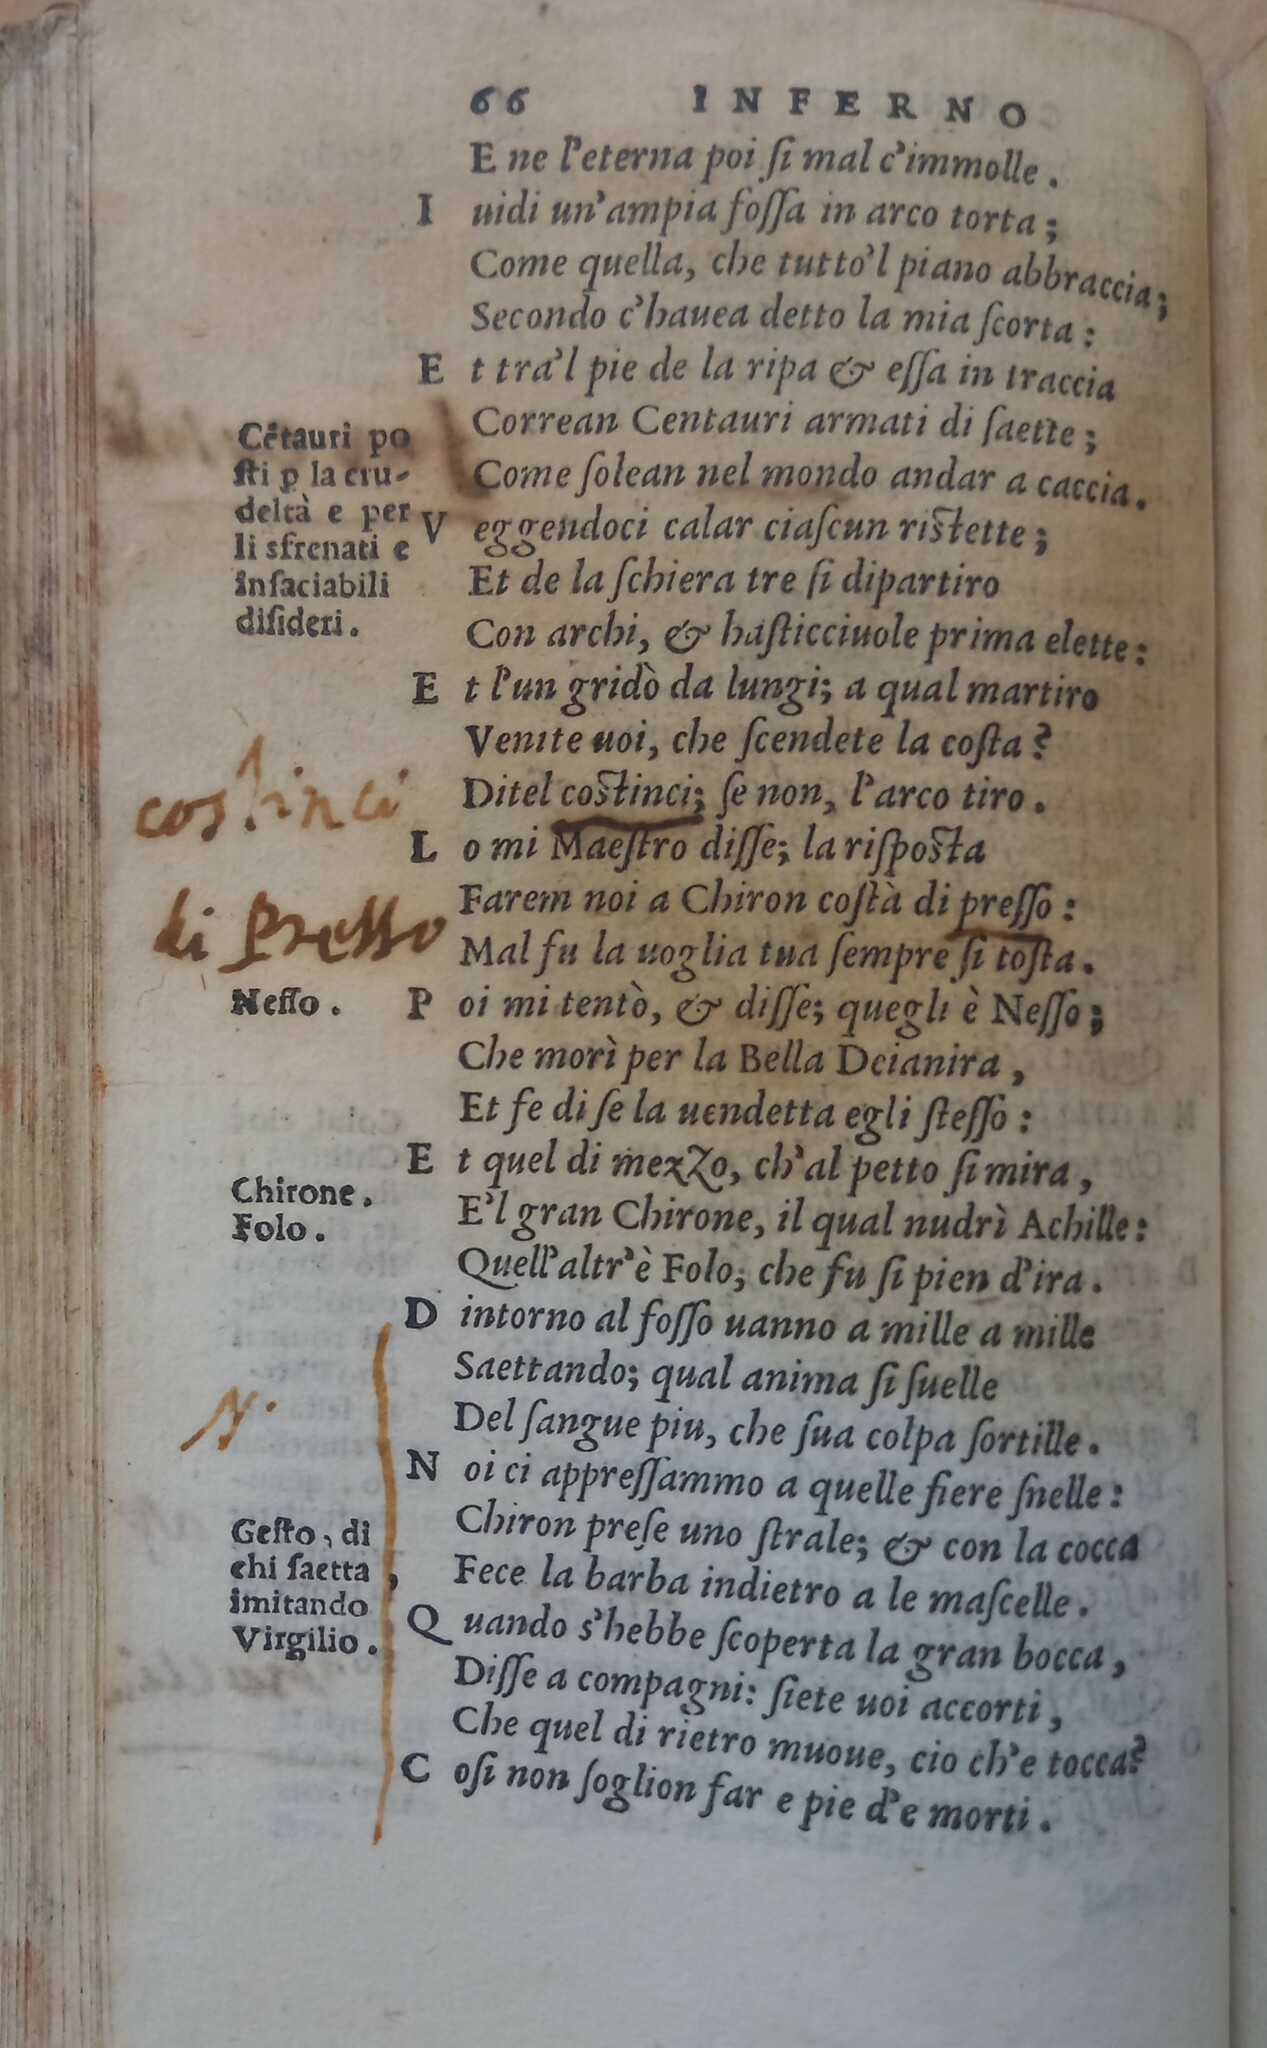 66 INFERNO
E ne l'eterna poi ſi mal c'immolle.
I uidi un'ampia foſſa in arco torta;
Come quella, che tutto'l piano abbraccia;
Secondo c'hauea detto la mia ſcorta:
E t tra'l pie de la ripa & eſſa in traccia
Correan Centauri armati di ſaette;
Come ſolean nel mondo andar a caccia.
V eggendoci calar ciaſcun riſtette;
Et de la ſchiera tre ſi dipartiro
Con archi, & haſticciuole prima elette:
E t l'un gridò da lungi; a qual martiro
Venite uoi, che ſcendete la coſta?
Ditel coſtinci; ſe non, l'arco tiro.
L o mi Maeſtro diſſe; la riſpoſta
Farem noi a Chiron coſtà di preſſo:
Mal fu la uoglia tua ſempre ſi toſta.
P oi mi tentò, & diſſe; quegli è Neſſo;
Che morì per la Bella Deianira,
Et fe di ſe la uendetta egli ſteſſo:
E t quel di mezZo, ch'al petto ſi mira,
E'l gran Chirone, il qual nudrì Achille:
Quell'altr'è Folo; che fu ſi pien d'ira.
D intorno al foſſo uanno a mille a mille
Saettando; qual anima ſi ſuelle
Del ſangue piu, che ſua colpa ſortille.
N oi ci appreſſammo a quelle fiere ſnelle:
Chiron preſe uno ſtrale; & con la cocca
Fece la barba indietro a le maſcelle.
Q uando s'hebbe ſcoperta la gran bocca,
Diſſe a compagni: ſiete uoi accorti,
Che quel di rietro muoue, cio ch'e tocca?
C oſi non ſoglion far e pie d'e morti.
Cētauri po
ſti p̱ la cru-
deltà e per
li sfrenati e
inſaciabili
diſideri.
costinci
di presso
Neſſo.
Chirone.
Folo.
N.
Geſto, di
chi ſaetta,
imitando
Virgilio.